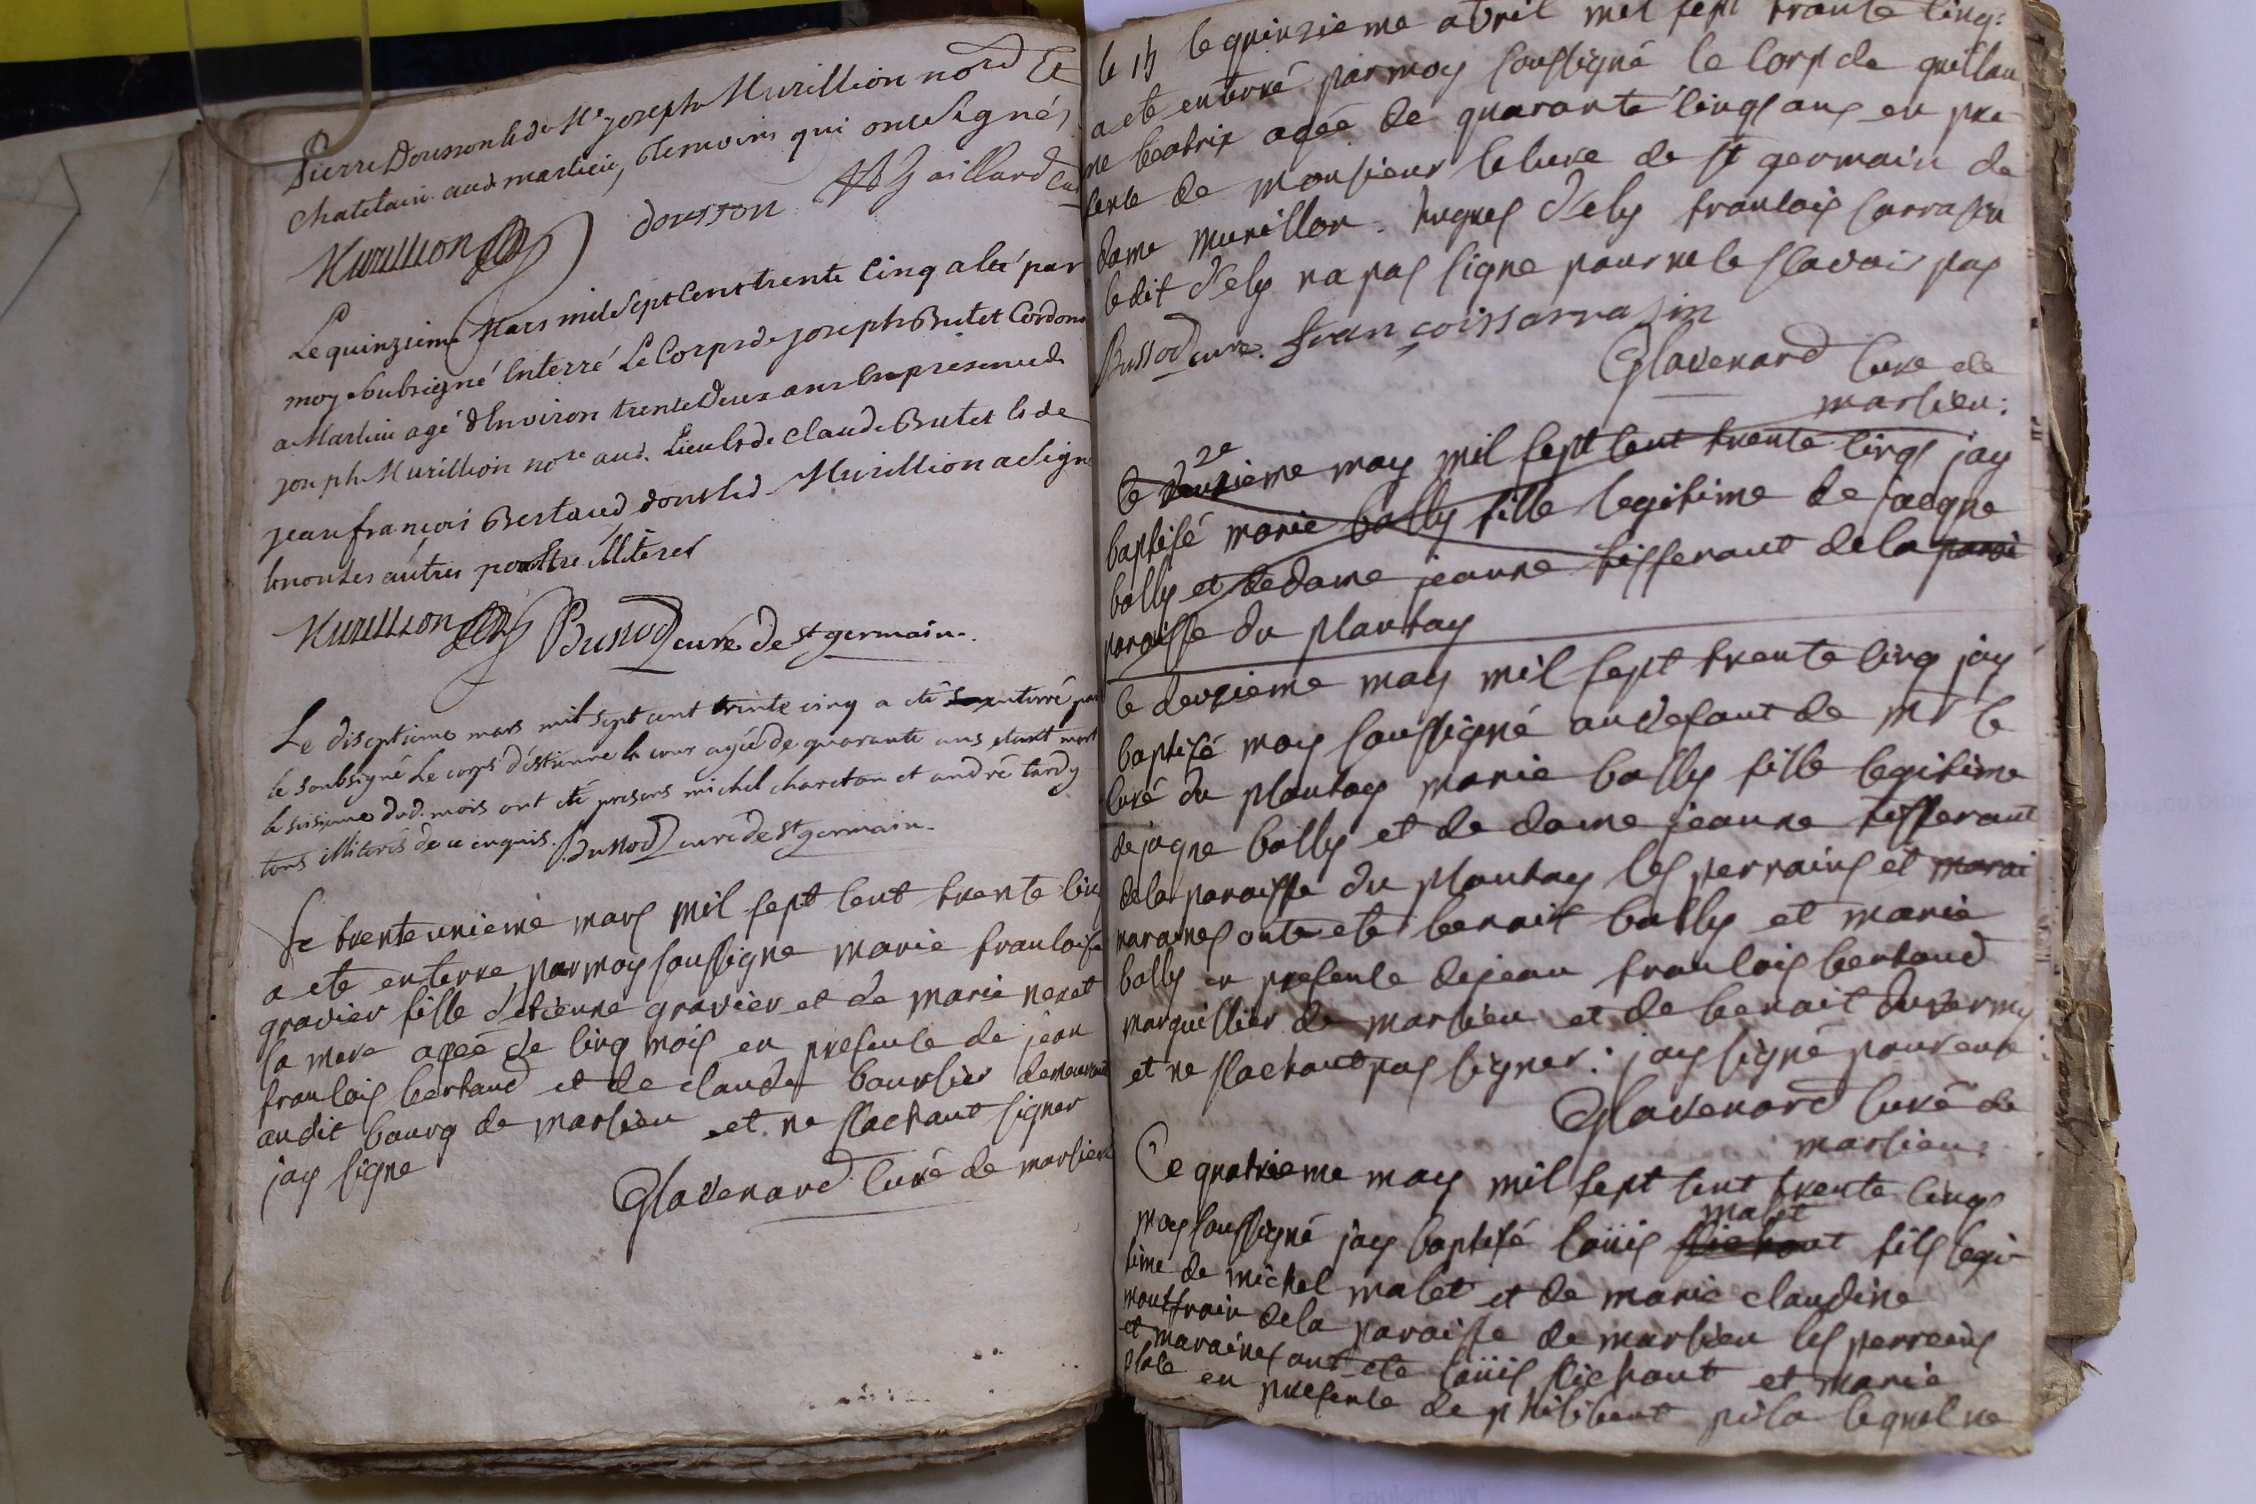 Pierre Dousson & de Me joseph Murillion nore Et
Chatelain aud. marlieu, temoins qui ont signés
Murillion dousson Gaillard curé
Le quinzieme Mars mil sept Cent trente Cinq a été par
moy subsigné Enterré Le Corps de joseph Butet Cordon
a Marlieu agé d'Environ trente Deux ans En presence de
joseph Murillion nore aud. Lieu & de Claude Butet & de
jean françois Bertaud dont led. Murillion a signé
& non Les autres pour être illiteres
Murillion Bussod curé de st germain.
Le diseptieme mars mil sept cent trinte cinq a été enterré par
le soubsigné Le corps d'éstienne la cour agée de quarante ans etant mort
le seisieme dud. mois ont été presens michel charetan et andré tardy
tous illiterés de ce enquis. Bussod curé de st germain.
Le trenteunieme mars mil sept cent trente cinq
a ete enterre par moy soussigne marie francoise
gravier fille d'etienne gravier et de marie neret
sa mere agée de cinq mois en presence de jean
francois bertaud et de claude boursier demeurant
audit bourg de marlieu et ne sachant signer
jay signe
Glavenard curé de marlieu
le 15 le quinzieme abril mil sept trante cinq:
a ete enterré par moy soussigné le corps de guillau
me beatrix agée de quarante cinqs ans en pre
sence de monsieur le cure de st germain de
dame murillon. hugues d'ely francois sarrasin
le dit d'ely na pas signe pour ne le scavoir pas
Bussod curé. françois sarrasin
Glavenard cure de
marlieu:
2e
le deuzieme may mil sept cent trente cinqs jay
baptisé marie bally fille legitime de jacque
bally et de dame jeanne tifferant de la paroi
paroisse du plantay
le deuzieme may mil sept trente cinq jay
baptisé moy soussigné au defaut de mr le
curé du plantay marie bally fille legitime
de jaque bally et de dame jeanne tifferant
de la paroisse du plantay les perrains et marai
maraines onte ete benait bally et marie
bally en presence de jean francois bertaud
marguillier de marlieu et de benait duvermy
et ne sachant pas signer: jay signé pour eux
Glavenard curé de
marlieu:
Le quatrieme may mil sept cent trente cinqs
malet
moy soussigné jay baptisé loüis fichant fils legi-
time de michel malet et de marie claudine
montfrain de la paroisse de marlieu les perreins
et maraines ont ete loüis fichant et marie
place en presence de philibeat pila lequel ne